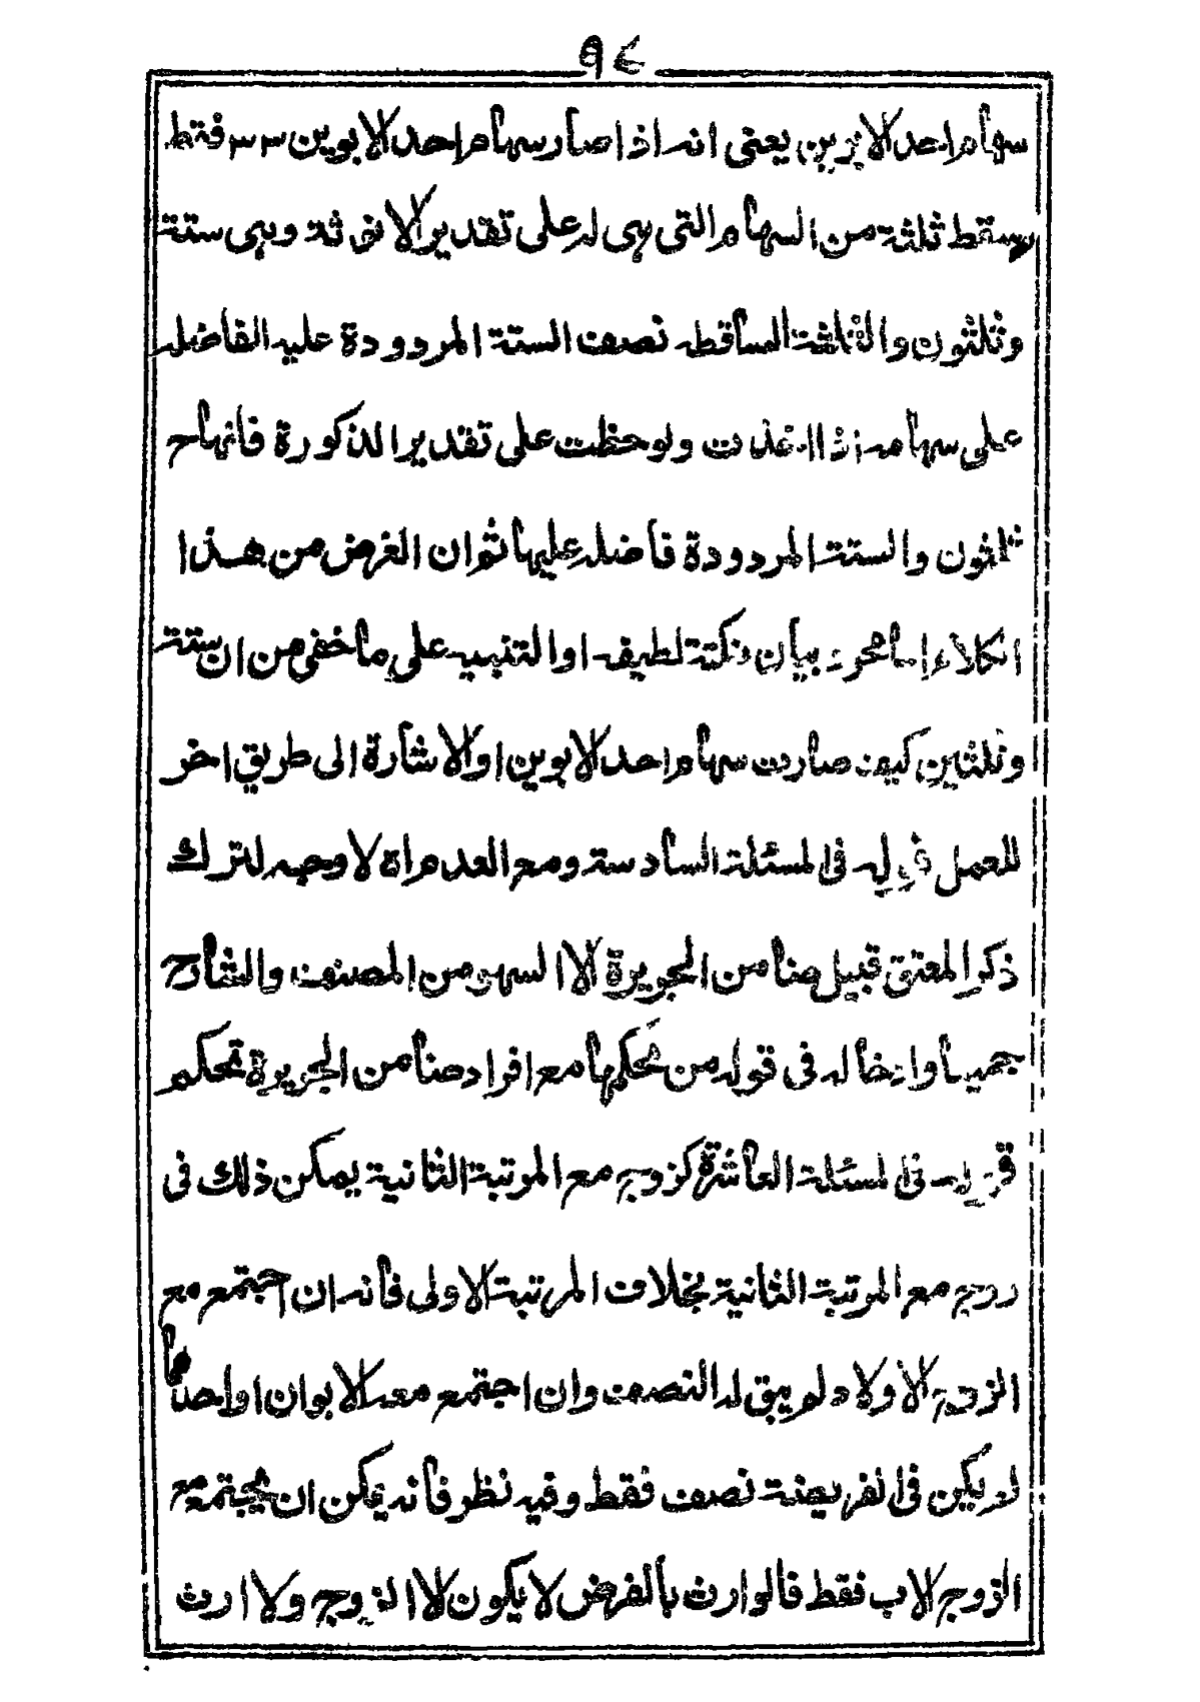 ٩٤
سهام احد الابوين يعنى انه اذا صار سهام احد الابوين ٣٣ فقط
يسقط ثلثة من السهام التى هى له على تقدير الانوثة وهى ستة
وثلثون والثلثة الساقطه نصف الستة المردودة عليه الفاضله
على سهامه اذا اخذت ولوحظت على تقدير الذكورة فانها ح
ثلثون والستة المردودة فاضله عليها ثم ان الغرض من هذا
الكلام اما مجرد بيان نكتة لطيفه او التنبيه على ما خفى من ان ستة
وثلثين كيف صارت سهام احد الابوين او الاشارة الى طريق اخر
للعمل قوله فى المسئلة السادسة ومع العدم اه لا وجه لترك
ذكر المعتق قبيل ضامن الجريرة الا السهو من المصنف والشارح
جميعا وادخاله فى قوله من بحكمها مع افراد ضامن الجريرة تحكم
قوله فى المسئلة العاشرة كزوج مع المرتبة الثانية يمكن ذلك فى
زوج مع المرتبة الثانية بخلاف المرتبة الاولى فانه ان اجتمع مع
الزوج الاولاد لم يبق له النصف وان اجتمع معه الابوان او احدهما
لم يكن فى الفريضة نصف فقط وفيه نظر فانه يمكن ان يجتمع مع
الزوج الاب فقط فالوارث بالفرض لا يكون الا الزوج ولا ارث